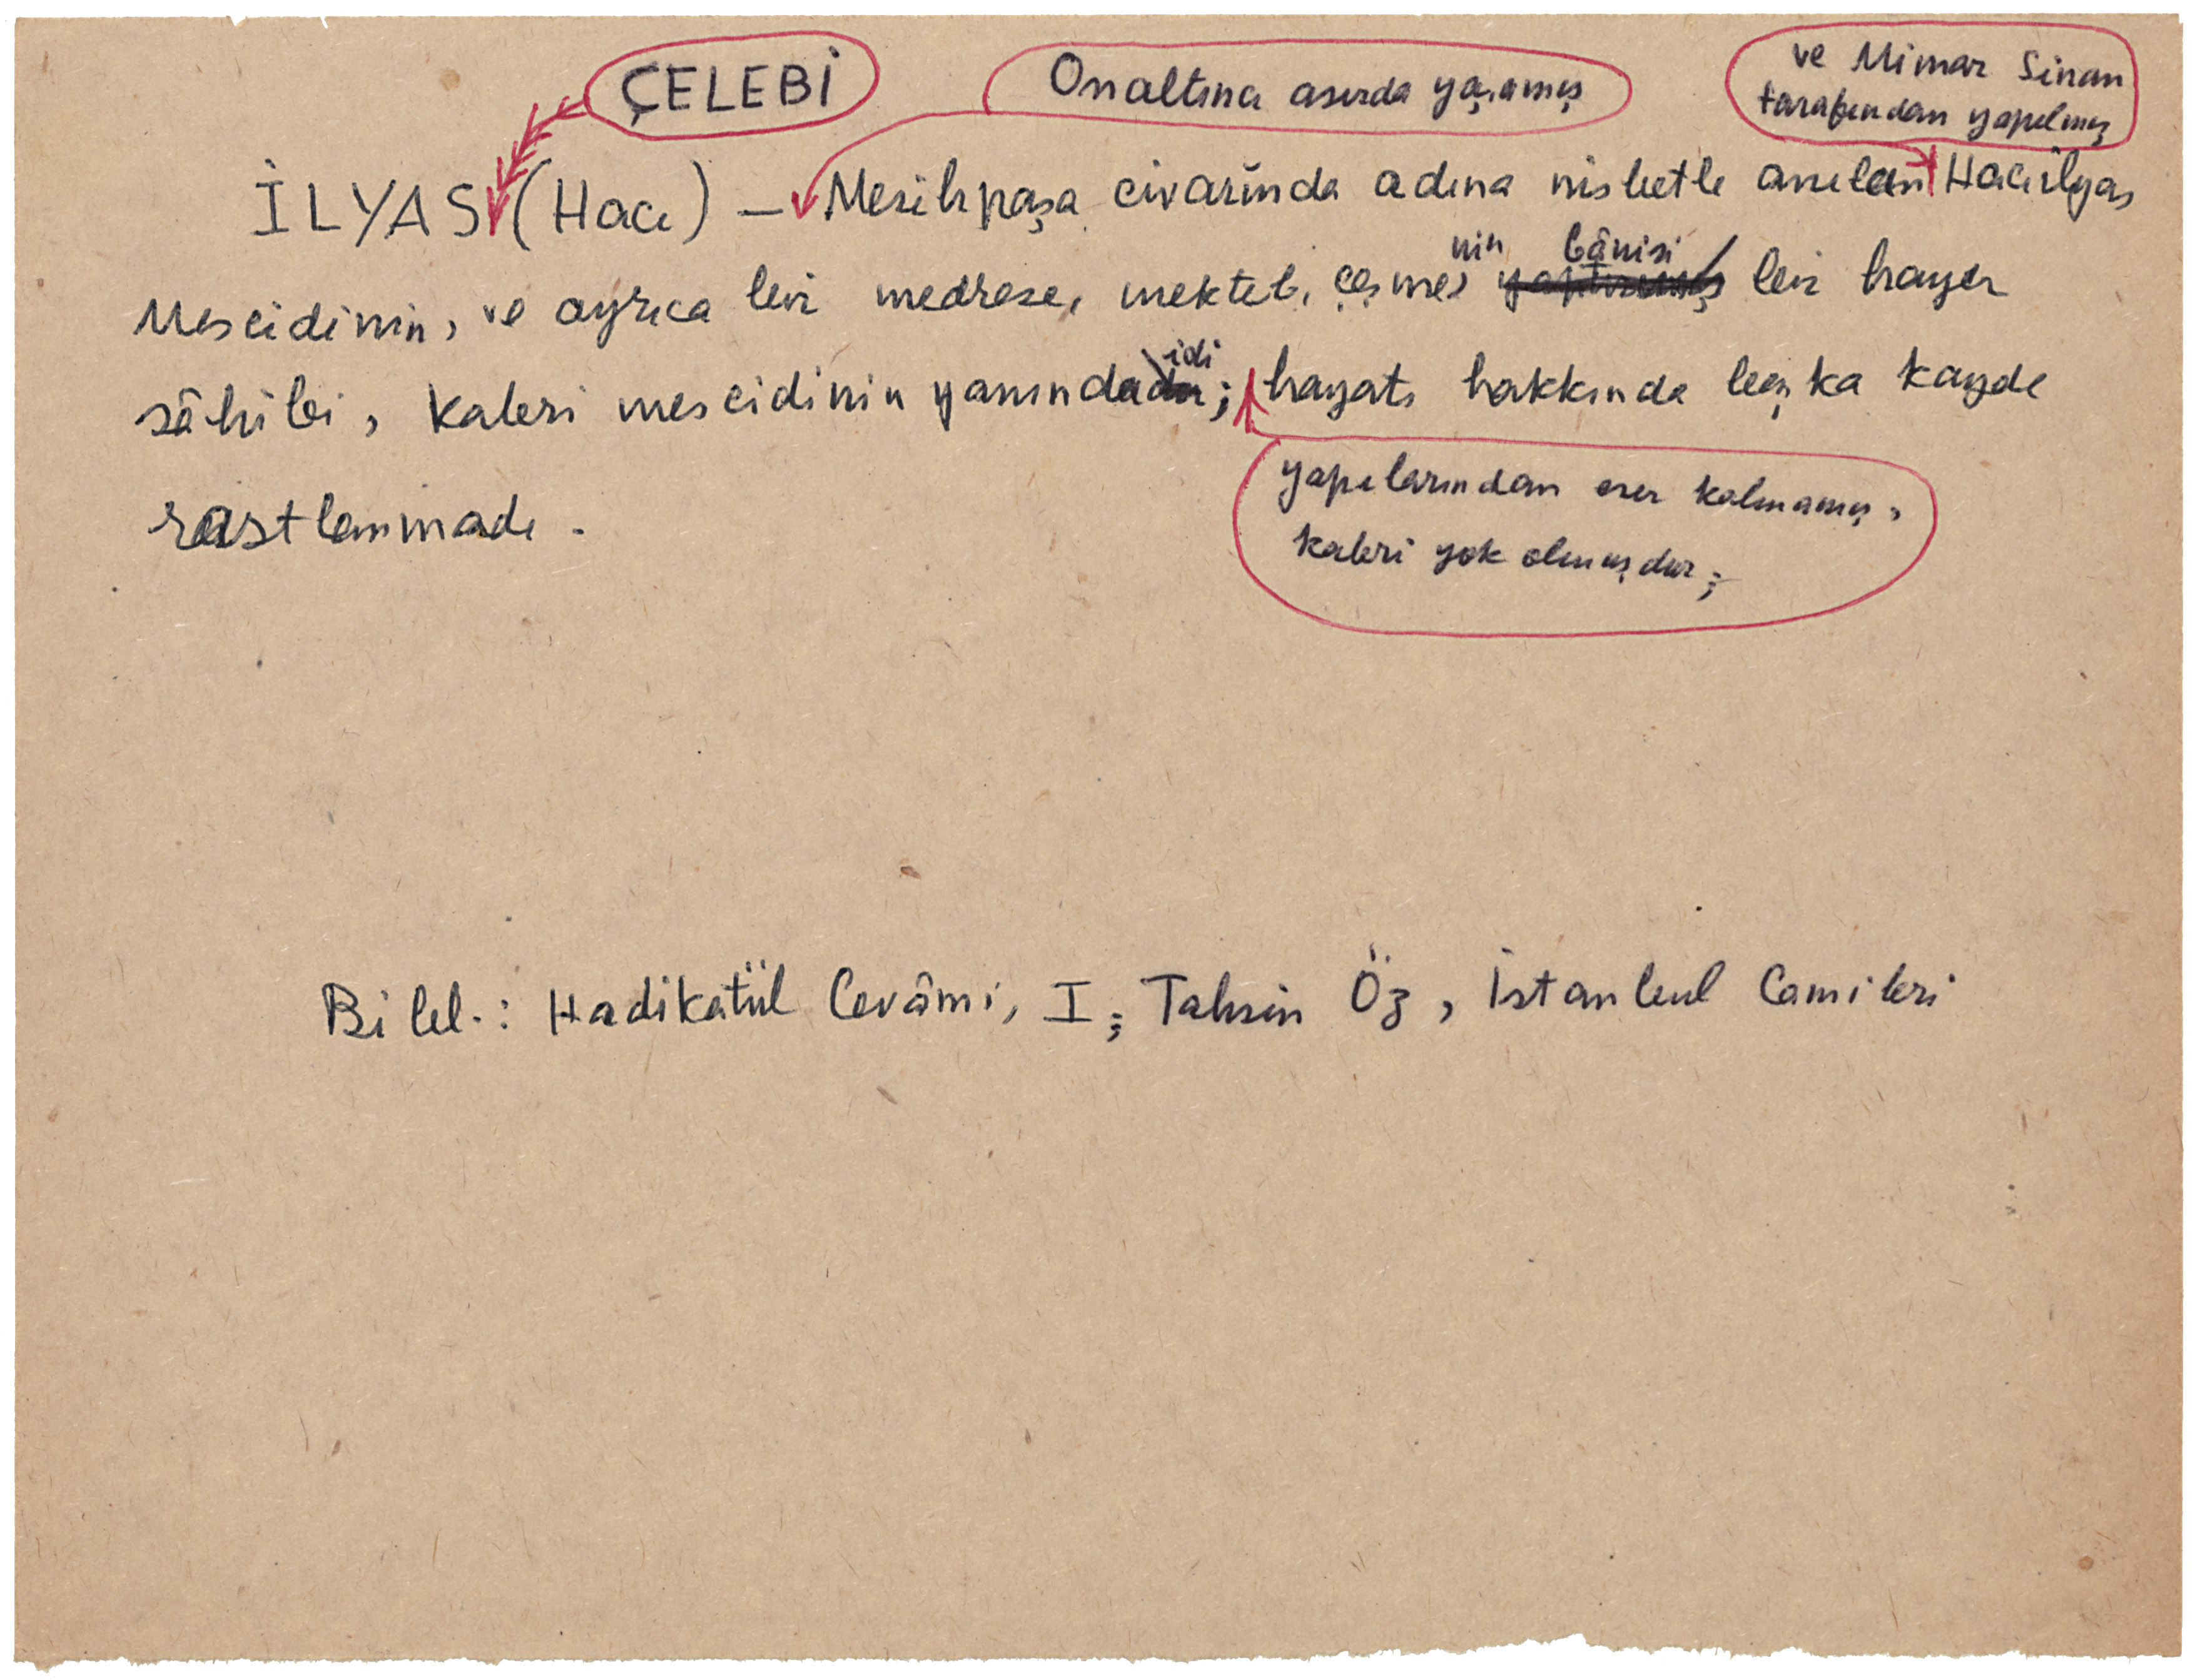 ÇELEBİ
Onaltıncı asırda yaşamış
ve Mimar Sinan
tarafından yapılmış
İLYAS (Hacı) — Mesihpaşa civarında adına nisbetle anılan Hacıilyas
nin bânisi
Mescidinin, ve ayrıca bir medrese, mekteb, çeşme bir hayır
idi
sâhibi, Kabri mescidinin yanında; hayatı hakkında başka kayde
yapılarından eser kalmamış,
kabri yok olmuşdur;
rastlanmadı.
Bibl.: Hadikatül Cevâmi, I; Tahsin Öz, İstanbul Camileri